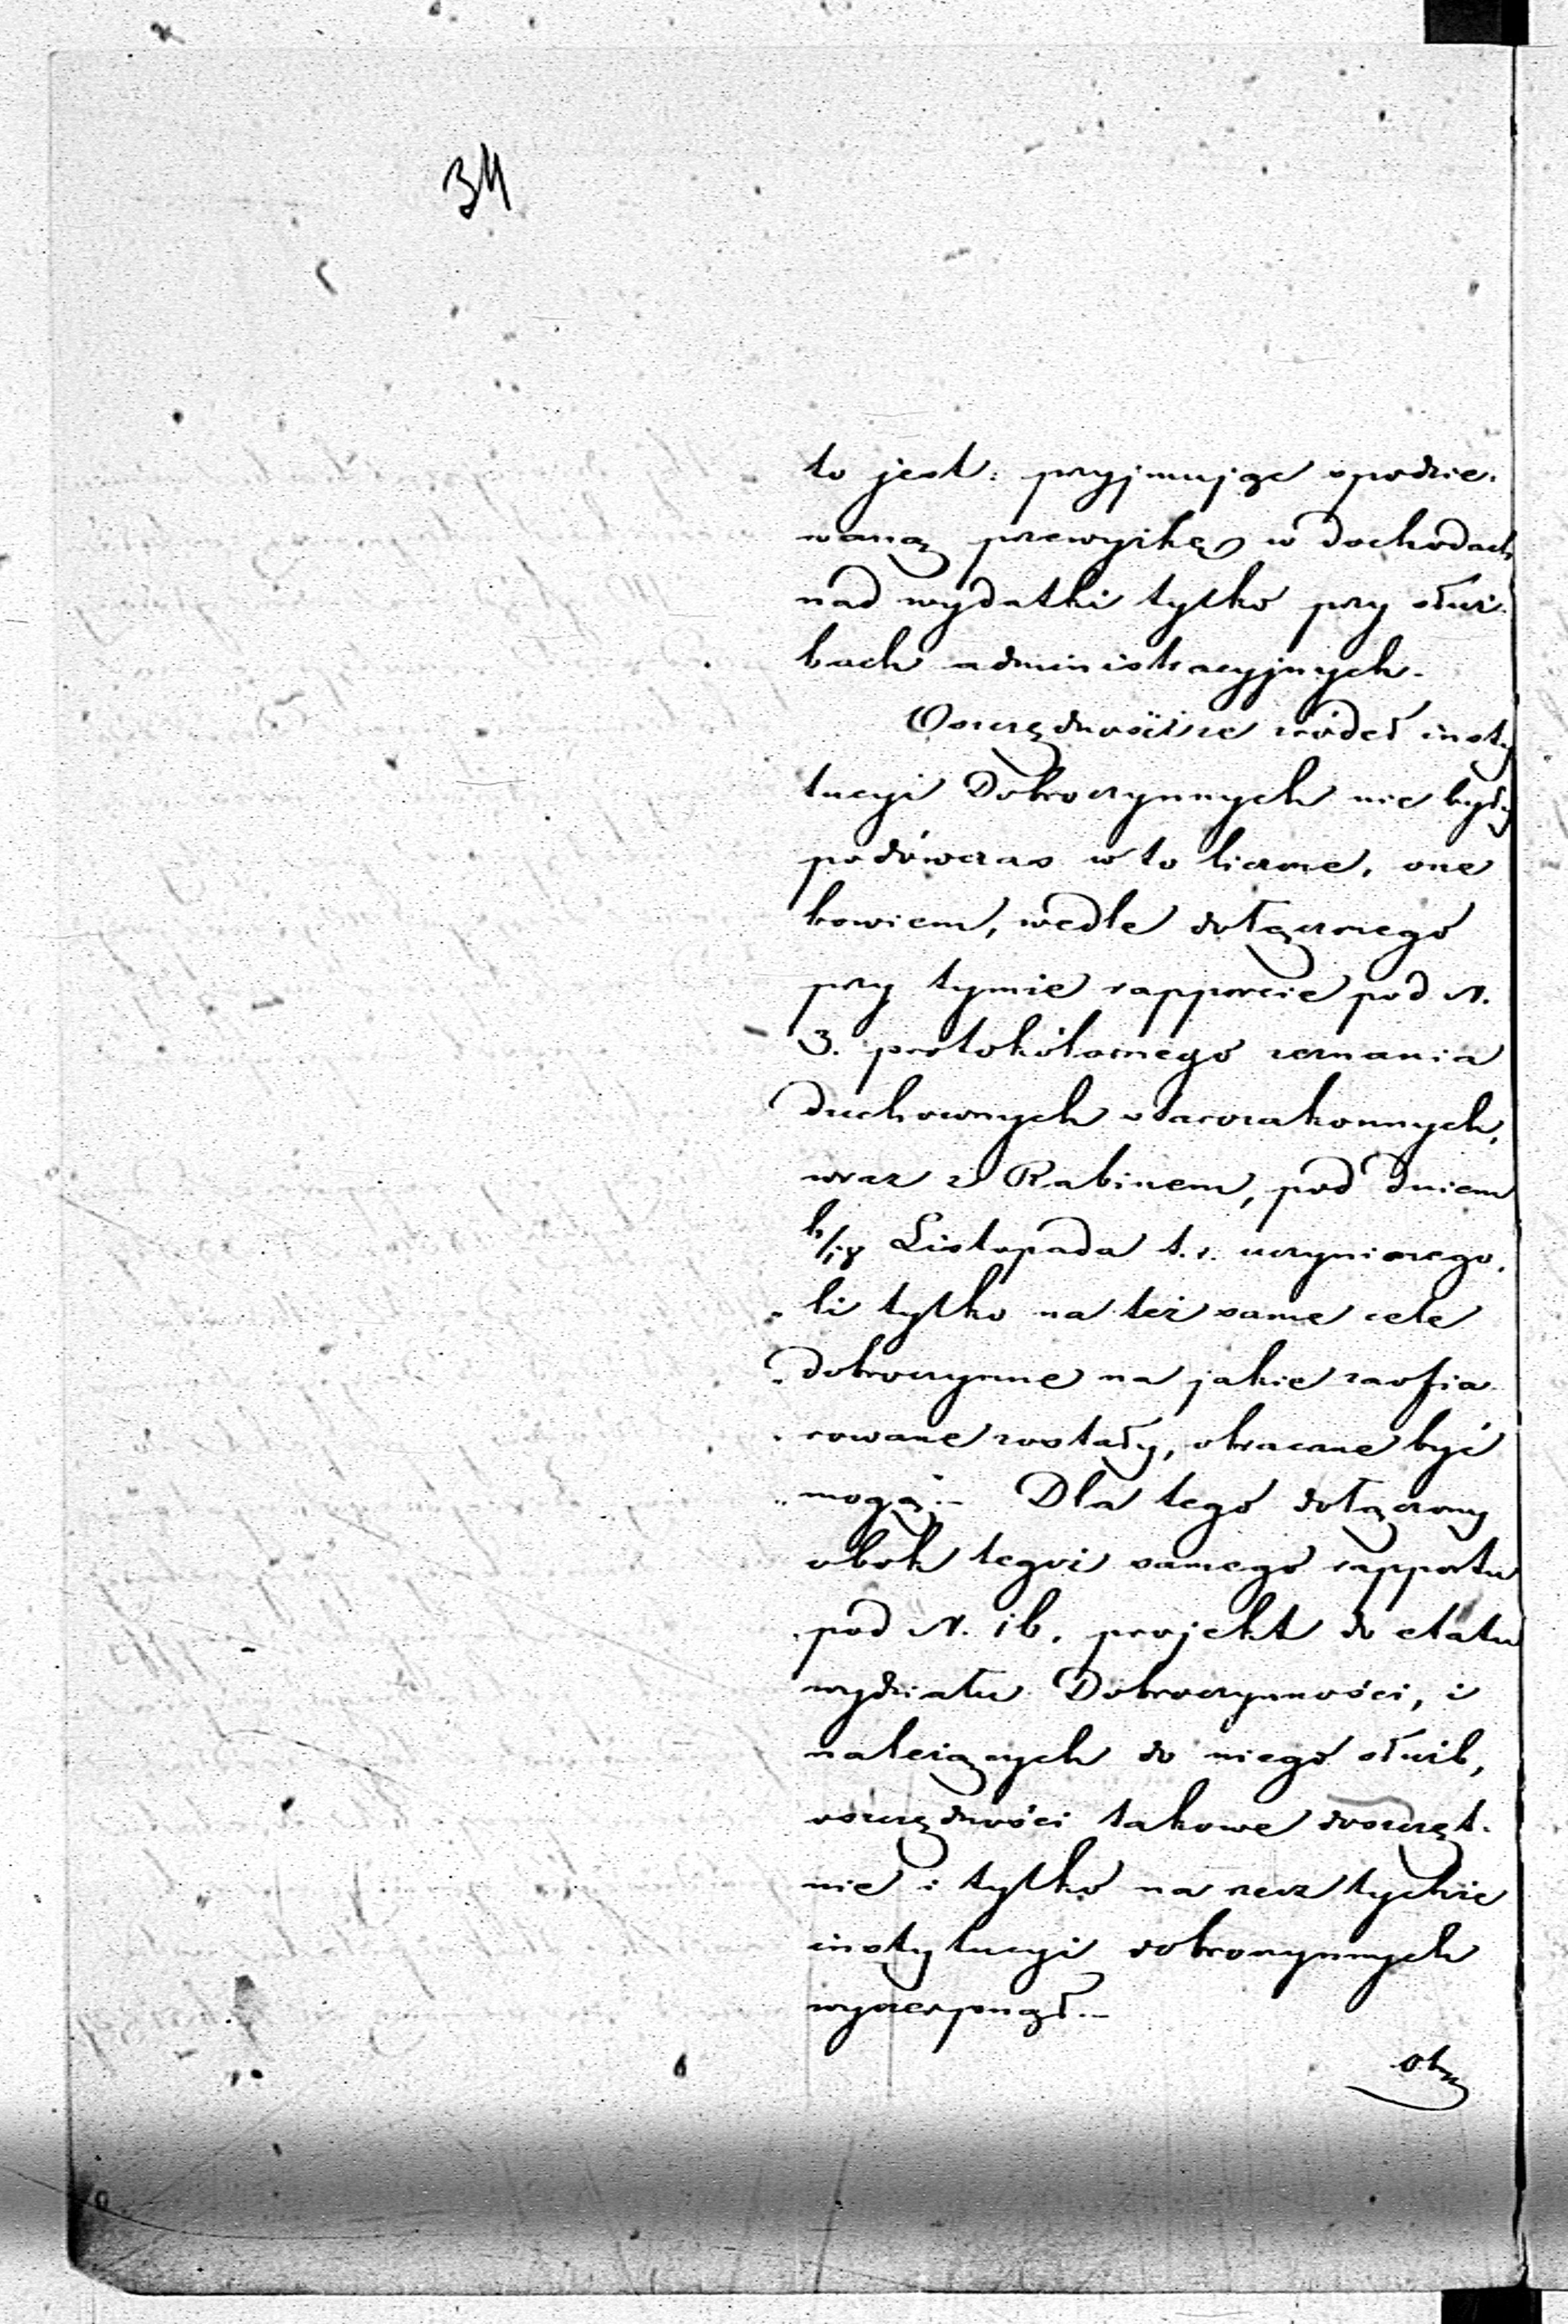 34
to jest: przyjmując spodzie-
waną przewyżkę w dochodach
nad wydatki tylko przy służ-
bach administracyjnych.
Oszczędności ze źródeł insty
tucyi Dobroczynnych nie były
podówczas w to liczone, one
bowiem, wedle dołączonego
przy tymże rapporcie pod N.
3. protokólarnego zeznania
duchownych starozakonnych,
wraz z Rabinem, pod dniem
6/18 Listopada t. r. uczynionego,
„li tylko na też same cele
„dobroczynne na jakie zaofia
„rowane zostały, obracane być
„mogą.– Dla tego dołączony
obok tegoż samego rapportu
pod N. 16. projekt do etatu
wydziału Dobroczynności, i
należących do niego służb,
oszczędności takowe doszczęt-
nie i tylko na rzecz tychże
instytucyi dobroczynnych
wyczerpnął.–